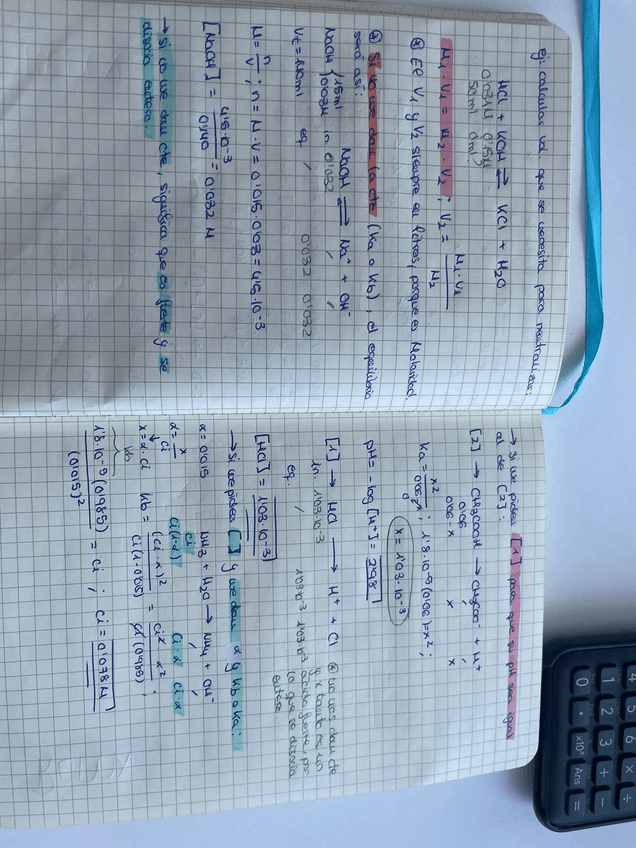 ej: calcular vol. que se necesita para neutralizar:
HCl + KOH ⇌ KCl + H2O
0'031M 0'15M
50ml ¿ml?
M1 · V1 = M2 · V2 ; V2 = M1 · V1 / M2
* El V1 y V2 siempre en litros, porque es Molaridad.
* Si no me dan la cte (Ka o Kb), el equilibrio
será así:
NaOH ⇌ Na+ + OH-
NaOH { 15ml
0'03M
in 0'032
Vt = 140ml eq / 0'032 0'032
M = n/V ; n = M · V = 0'015 · 0'03 = 4'5·10-3
[NaOH] = 4'5·10-3 / 0'140 = 0'032 M
→ Si no me dan cte, significa que es fuerte y se
disocia entero.
→ Si me piden [1] para que su pH sea igual
al de [2]:
[2] → CH3COOH → CH3COO- + H+
0'06
0'06-x x x
Ka = x2 / 0'06-x ; 1'8·10-5 (0'06) = x2 ;
x = 1'03·10-3
pH = -log [H+] = 2'98
[1] → HCl → H+ + Cl
in. 1'03·10-3
eq. / 1'03·10-3 1'03·10-3
* no nos dan cte
y x tanto es un
ácido fuerte, por
lo que se disocia
entero
[HCl] = 1'03·10-3
→ Si me piden [ ] y me dan α y Kb o Ka:
α = 0'015 NH3 + H2O → NH4 + OH-
ci
α = x / ci ci(1-α) ci·α ci·α
x = α·ci Kb = (ci·α)2 / ci(1-0'015) = ci2 · α2 / ci (0'985) ;
Kb
1'8·10-5 (0'985) / (0'015)2 = ci ; ci = 0'078 M
4 5 6 × ÷
1 2 3 + −
0 · ×10x Ans =